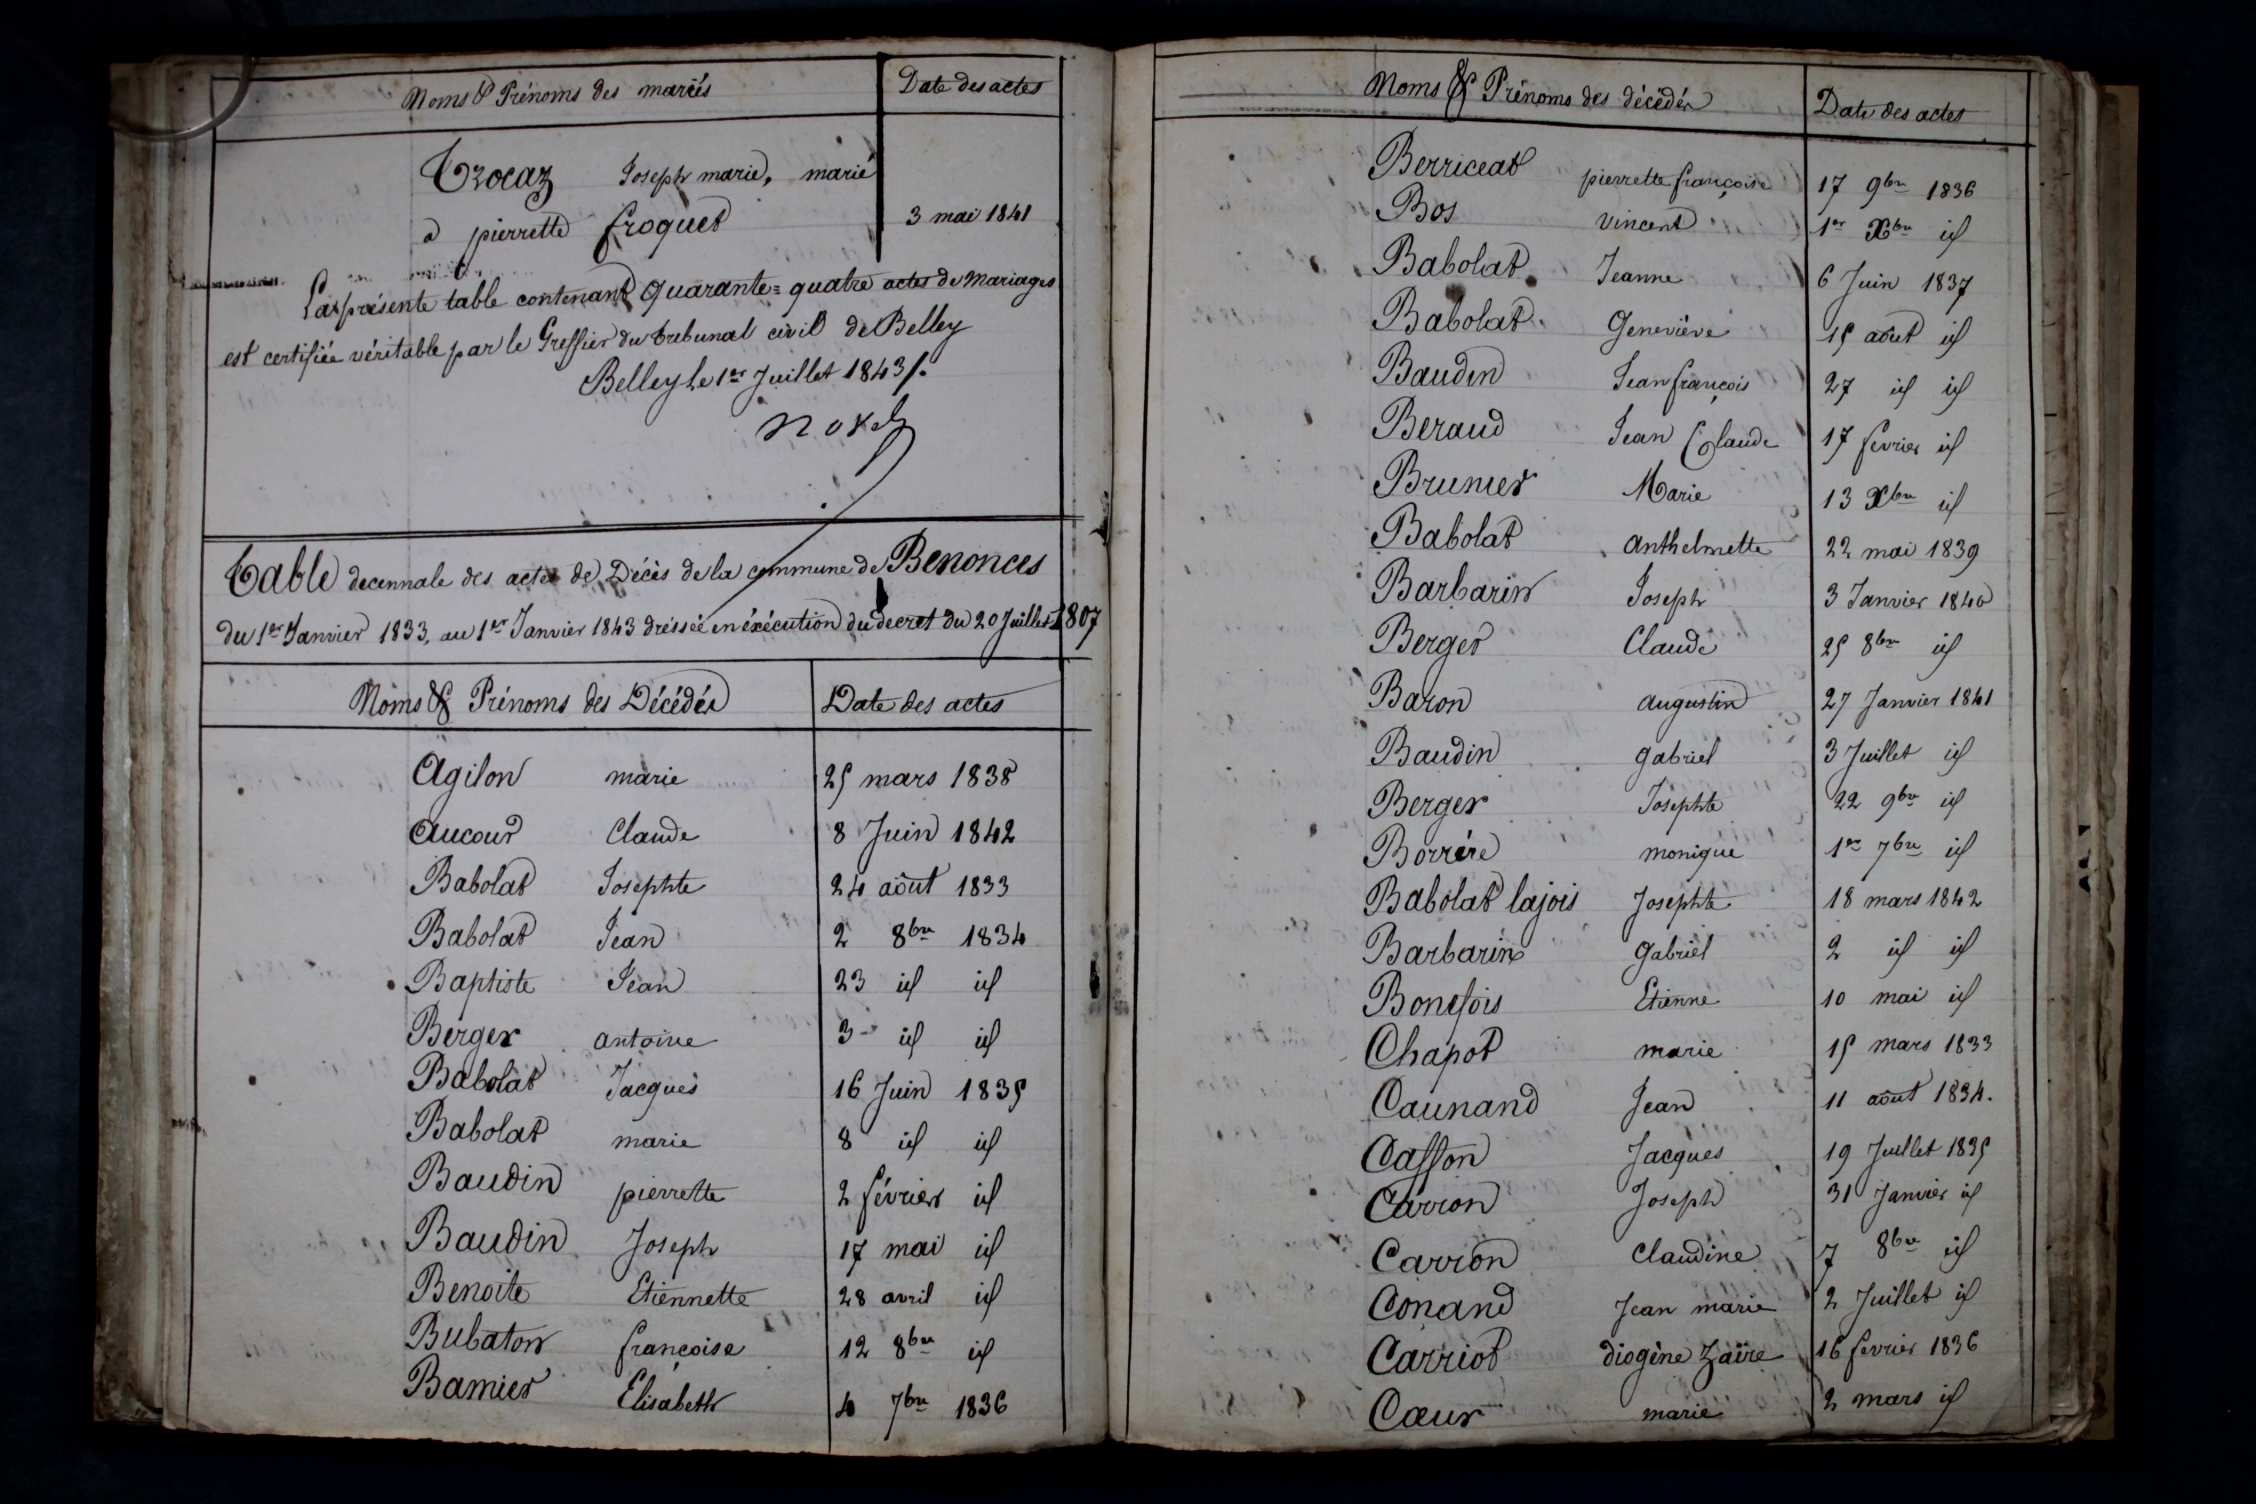 Noms & Prénoms des mariés Date des actes
Trocaz Joseph marie, marié
à pierrette froquet 3 mai 1841
La présente table contenant Quarante=quatre actes de Mariages
est certifiée véritable par le Greffier du tribunal civil de Belley
Belley le 1er Juillet 1843/.
Table decennale des actes de Décès de la commune de Benonces
du 1er Janvier 1833, au 1er Janvier 1843 dréssée en éxécution du decret du 20 Juillet 1807
Noms & Prénoms des Décédés Date des actes
Agilon marie 25 mars 1838
Aucour Claude 8 Juin 1842
Babolat Josephte 24 août 1833
Babolat Jean 2 8bre 1834
Baptiste Jean 23 id id
Berger antoine 3 id id
Babolat Jacques 16 Juin 1835
Babolat marie 8 id id
Baudin pierrette 2 février id
Baudin Joseph 17 mai id
Benoite Etiennette 28 avril id
Bubaton françoise 12 8bre id
Bamier Elisabeth 4 7bre 1836
Noms & Prénoms des décédés Date des actes
Berriceat pierrette françoise 17 9bre 1836
Bos vincent 1er Xbre id
Babolat Jeanne 6 Juin 1837
Babolat Geneviève 15 août id
Baudin Jean françois 27 id id
Beraud Jean Claude 17 fevrier id
Brunier Marie 13 Xbre id
Babolat anthelmette 22 mai 1839
Barbarin Joseph 3 Janvier 1840
Berger Claude 25 8bre id
Baron augustin 27 Janvier 1841
Baudin gabriel 3 Juillet id
Berger Josephte 22 9bre id
Borrére monique 1er 7bre id
Babolat lajois Josephte 18 mars 1842
Barbarin gabriel 2 id id
Bonefois Etienne 10 mai id
Chapot marie 15 mars 1833
Caunand Jean 11 août 1834.
Casson Jacques 19 Juillet 1835
Carron Joseph 31 Janvier id
Carron Claudine 7 8bre id
Conand Jean marie 2 Juillet id
Carriot diogène Zaïre 16 fevrier 1836
Cœur marie 2 mars id